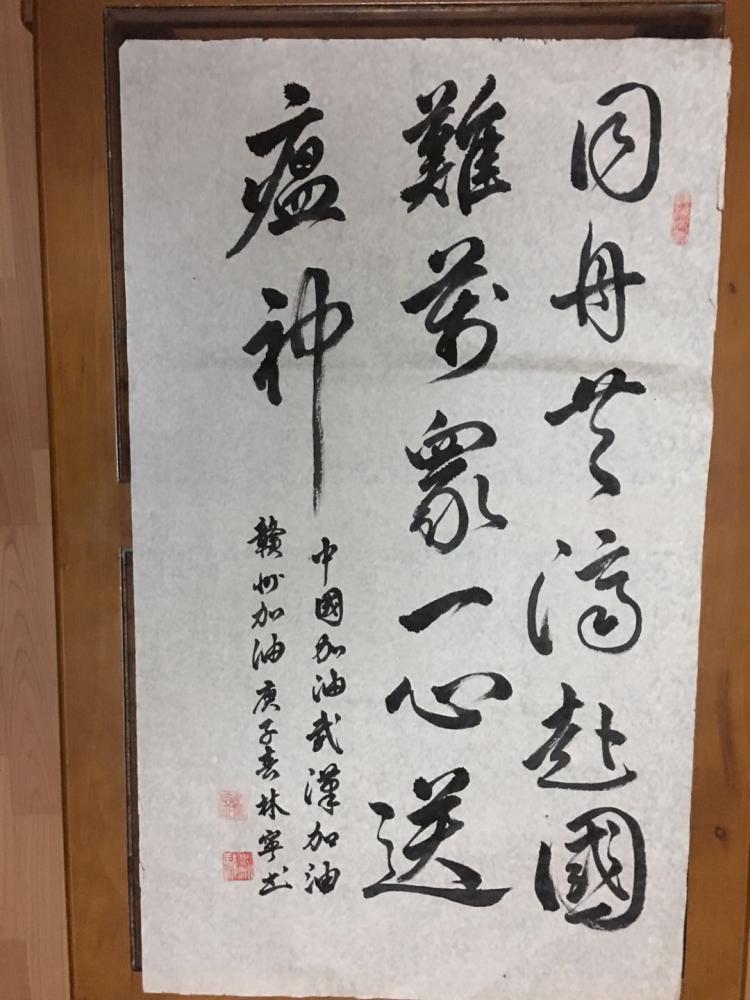 同舟共濟赴國
難萬眾一心送
瘟神
中國加油武漢加油
贛州加油庚子春林寧书